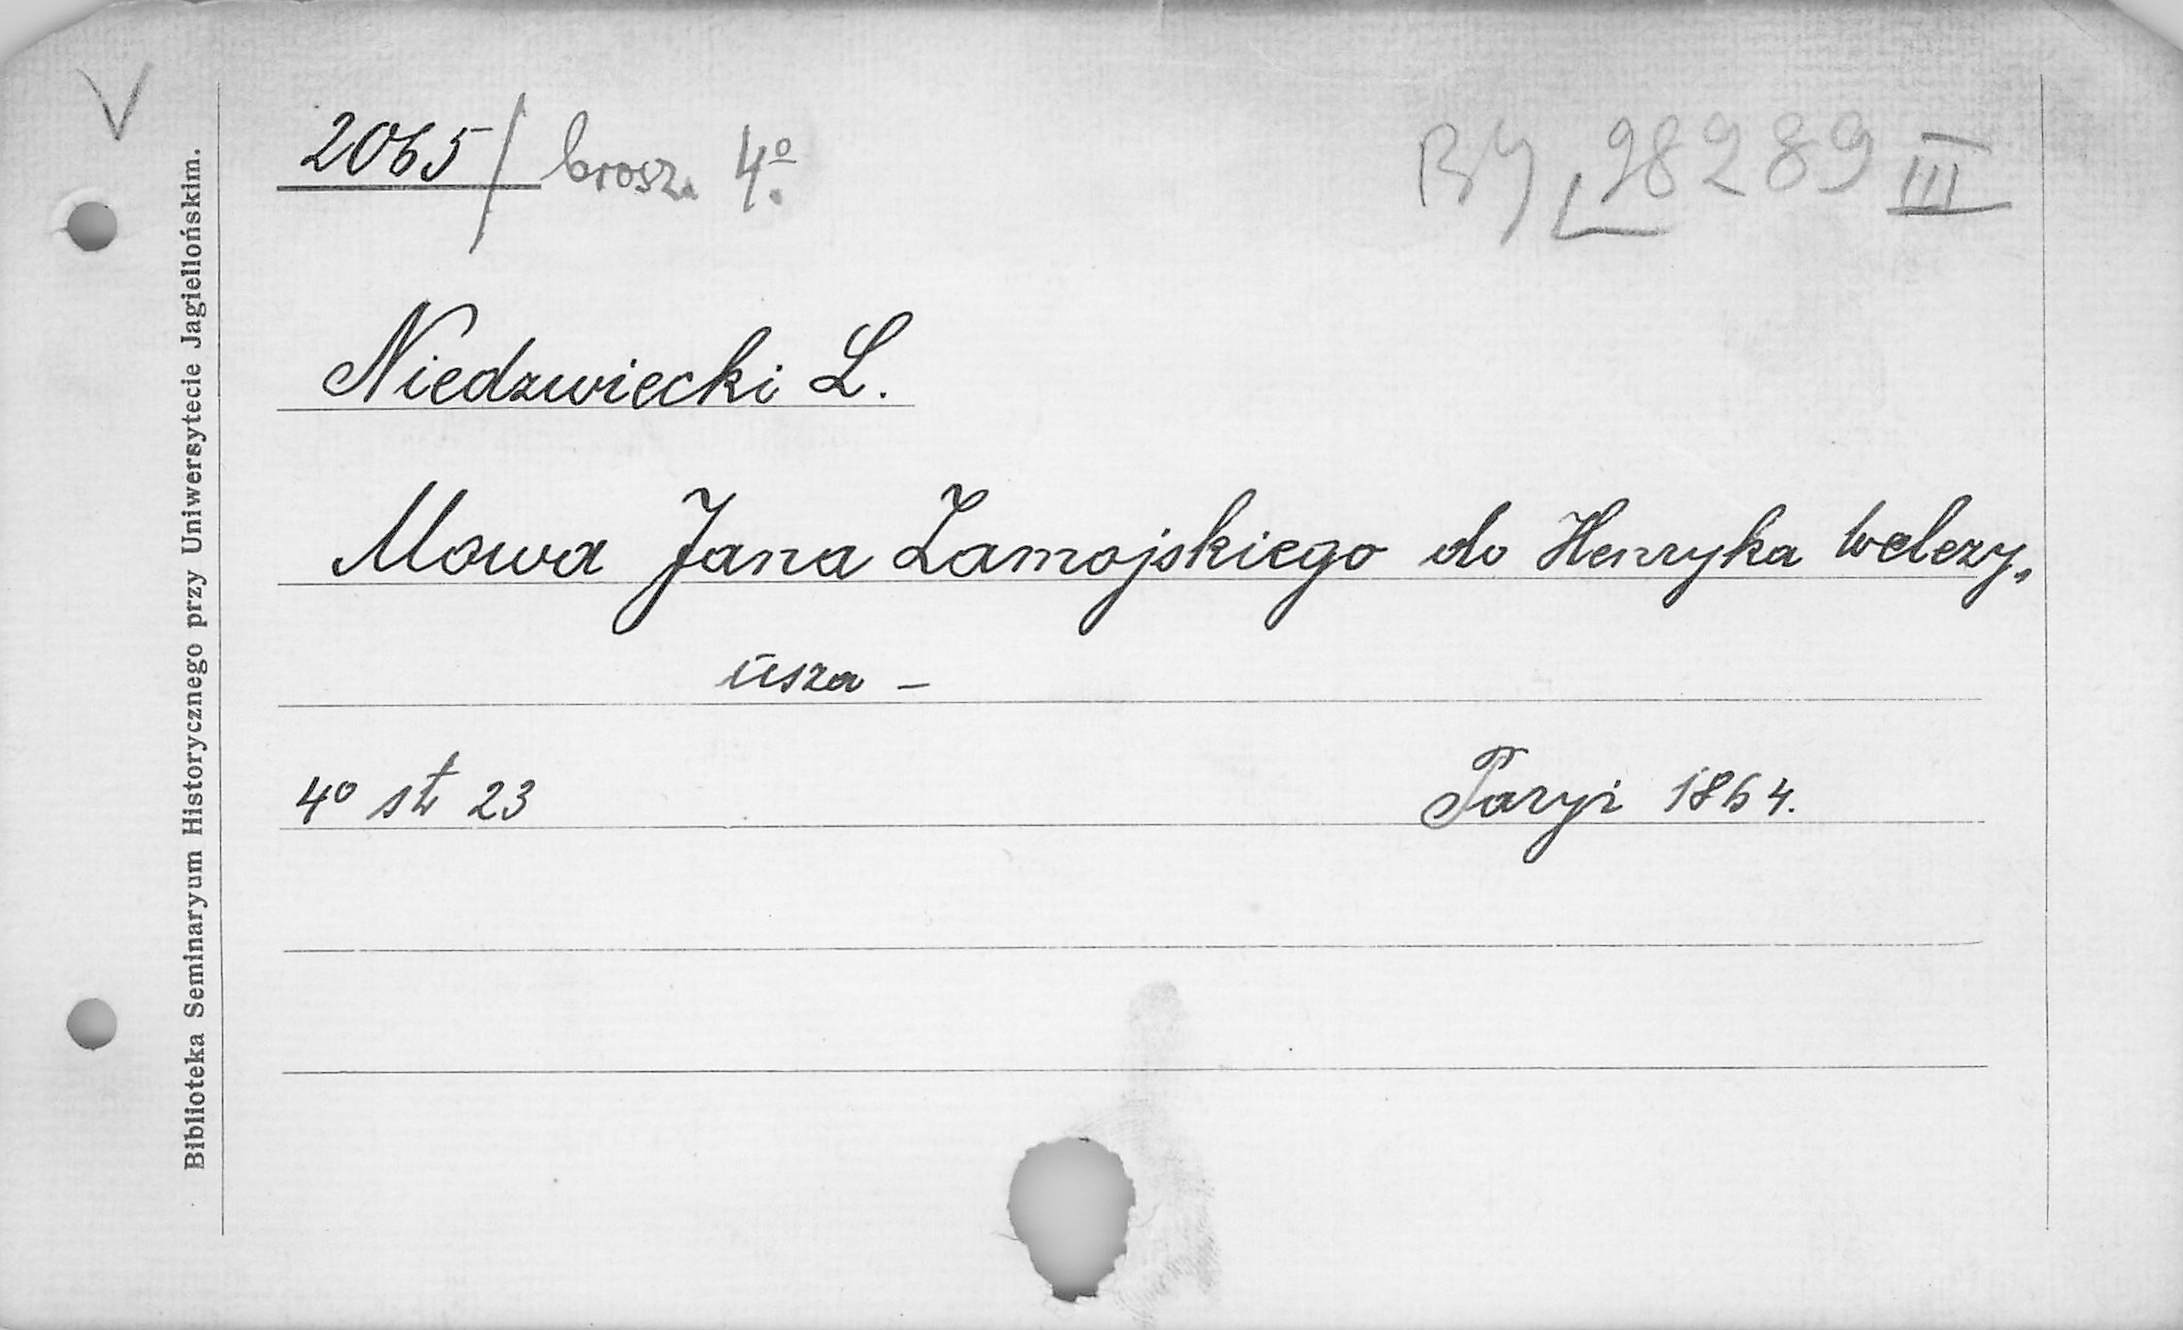 V
2065/ brosz. 4º.
BJ 98289 III
Niedzwiecki L.
Mowa Jana Zamojskiego do Henryka Walezy-
usza –
4º str 23 Paryż 1864.
Biblioteka Seminaryum Historycznego przy Uniwersytecie Jagiellońskim.